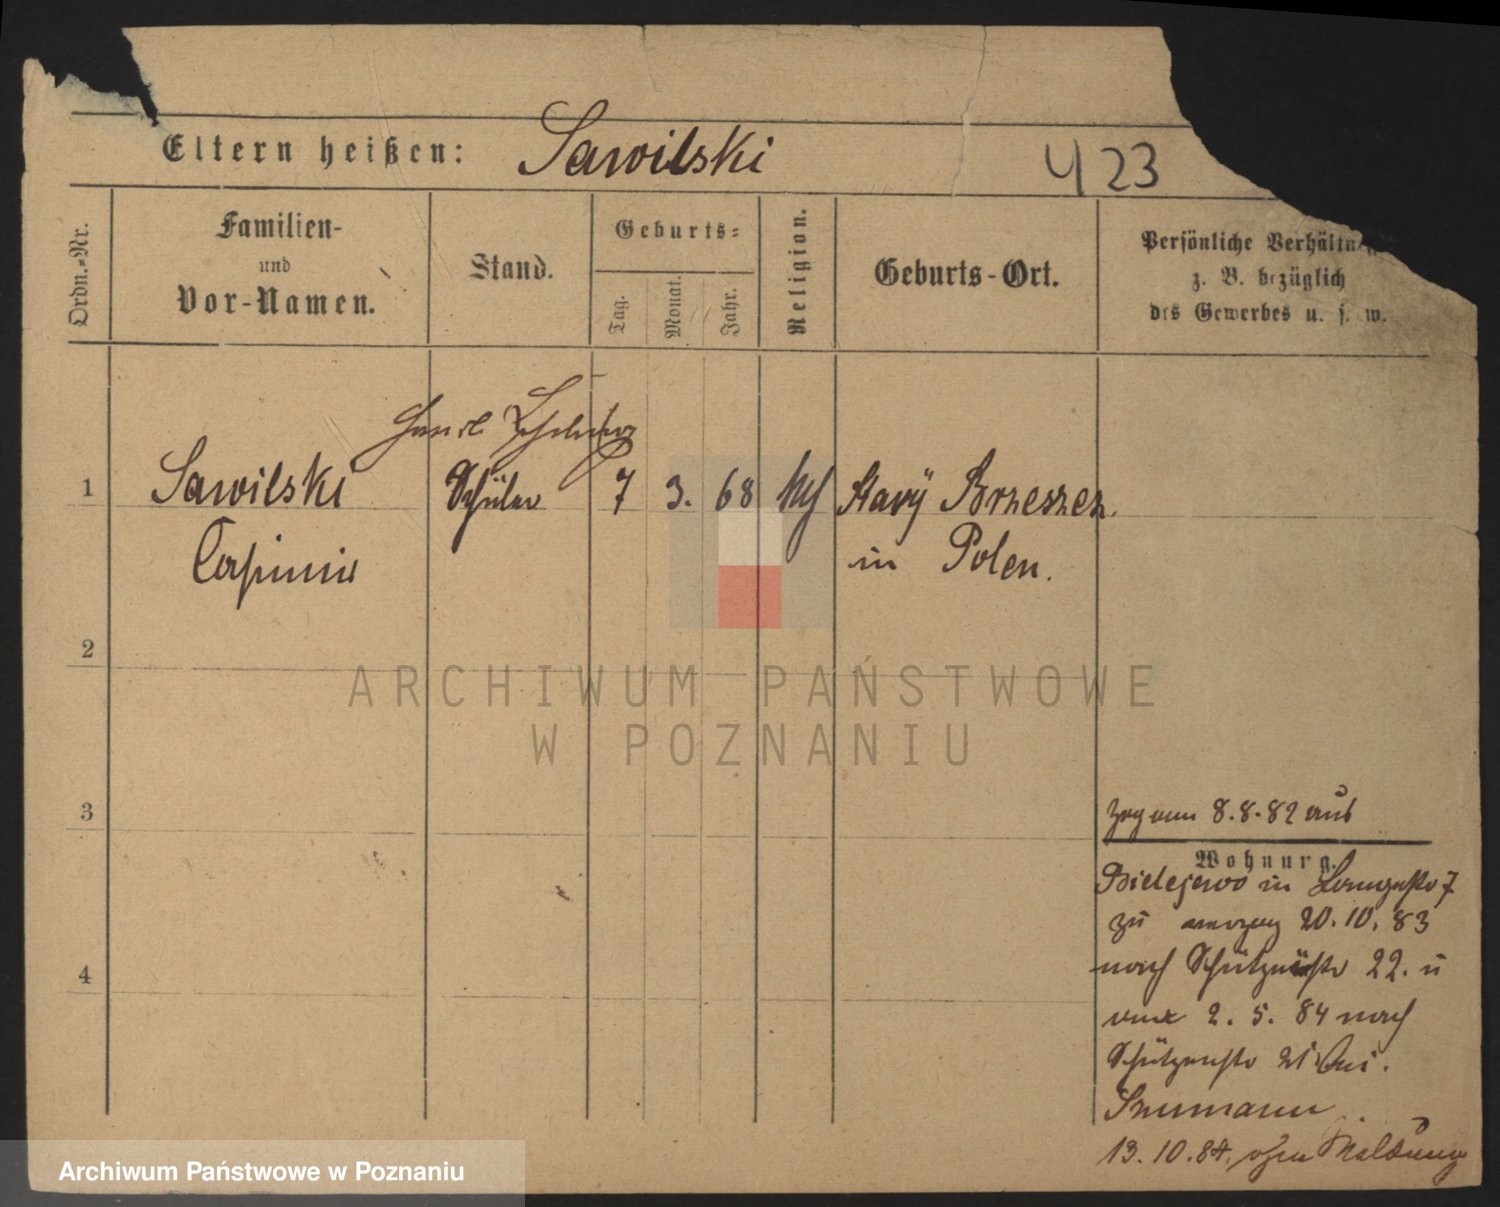 Eltern heißen: Sawilski 423
Ordn.=Nr.
Familien-
und
Vor-Namen.
Stand.
Geburts=
Tag.
Monat.
Jahr.
Religion.
Geburts-Ort.
Persönliche Verhältn
z. B. bezüglich
des Gewerbes u. s. w.
1 Sawilski Schüler 7 3. 68 kth Stary Brzeszez.
Casimir in Polen.
2
3
4
Zog am 8.8.82 aus
Wohnung.
Bielejewo in Langestr 7
zu 20.10.83
nach Schützenstr 22. u
2. 5. 84 nach
Schützenstr 21 bei.
Szumann
13.10.84, ohne Meldung
ARCHIWUM PAŃSTWOWE
W POZNANIU
Archiwum Państwowe w Poznaniu